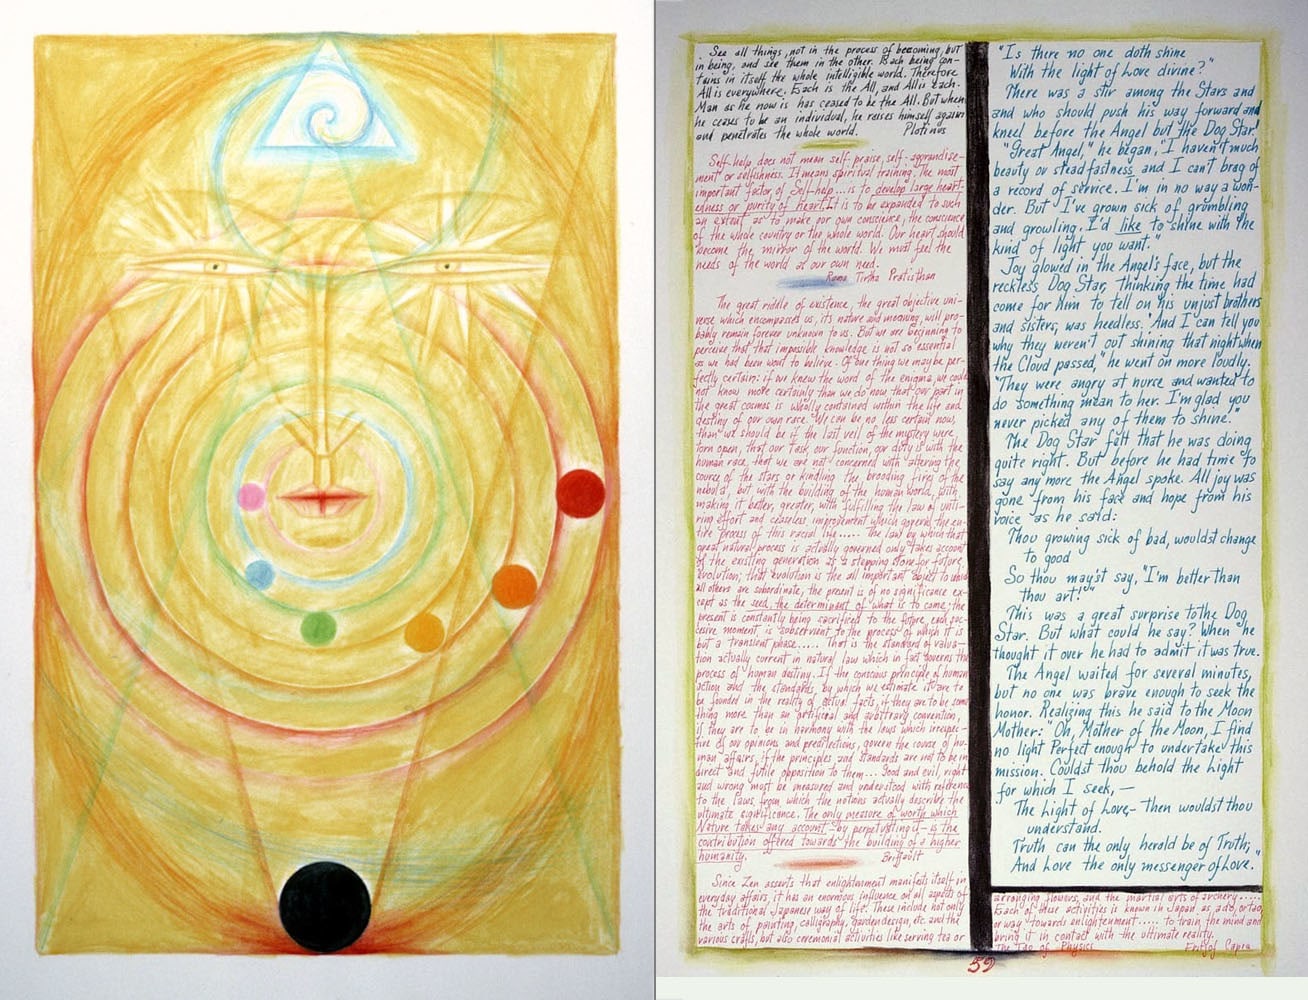 See all things, not in the process of becoming, but
in being, and see them in the other. Each being con-
tains in itself the whole intelligible world. Therefore
All is everywhere. Each is the All, and All is each.
Man as he now is has ceased to be the All. But when
he ceases to be an individual, he raises himself again
and penetrates the whole world. Plotinus
Self-help does not mean self-praise, self-aggrandise-
ment or selfishness. It means spiritual training. The most
important factor of Self-help... is to develop large heart-
edness or purity of heart. It is to be expanded to such
an extent as to make our own conscience, the conscience
of the whole country or the whole world. Our heart should
become the mirror of the world. We must feel the
needs of the world as our own need.
Rama Tirtha Pratisthan
The great riddle of existence, the great objective uni-
verse which encompasses us, its nature and meaning, will pro-
bably remain forever unknown to us. But we are beginning to
perceive that that impossible knowledge is not so essential
as we had been wont to believe. Of one thing we may be per-
fectly certain: if we knew the word of the enigma, we could
not know more certainly than we do now that our part in
the great cosmos is wholly contained within the life and
destiny of our own race. We can be no less certain now,
than we should be if the last veil of the mystery were
torn open, that our task, our function, our duty is with the
human race, that we are not concerned with altering the
course of the stars or kindling the brooding fires of the
nebula, but with the building of the human world, with
making it better, greater, with fulfilling the law of unti-
ring effort and ceaseless improvement which govern the en-
tire process of this racial life..... The law by which that
great natural process is actually governed only takes account
of the existing generation as a stepping stone for future
evolution; that evolution is the all important object to which
all others are subordinate, the present is of no significance ex-
cept as the seed, the determinant of what is to come; the
present is constantly being sacrificed to the future, each suc-
cesive moment is subservient to the process of which it is
but a transient phase..... That is the standard of valua-
tion actually current in natural law which in fact governs the
process of human destiny. If the conscious principle of human
action and the standards by which we estimate it are to
be founded in the reality of actual facts, if they are to be some
thing more than an artificial and arbitrary convention,
if they are to be in harmony with the laws which irrespec-
tive of our opinions and predilections, govern the course of hu-
man affairs, if the principles and standards are not to be in
direct and futile opposition to them... Good and evil, right
and wrong must be measured and understood with reference
to the laws from which the notions actually describe the
ultimate significance. The only measure of worth which
Nature takes any account - by perpetuating it - is the
contribution offered towards the building of a higher
humanity. Briffault
Since Zen asserts that enlightenment manifests itself in
everyday affairs, it has an enormous influence on all aspects of
the traditional Japanese way of life. These include not only
the arts of painting, calligraphy, garden design, etc. and the
various crafts, but also ceremonial activities like serving tea or
"Is there no one doth shine
With the light of Love divine?"
There was a stir among the Stars and
and who should push his way forward and
kneel before the Angel but the Dog Star!
"Great Angel," he began, "I haven't much
beauty or steadfastness and I can't brag of
a record of service. I'm in no way a won-
der. But I've grown sick of grumbling
and growling. I'd like to shine with the
kind of light you want."
Joy glowed in the Angel's face, but the
reckless Dog Star, thinking the time had
come for him to tell on his unjust brothers
and sisters, was heedless. "And I can tell you
why they weren't out shining that night when
the Cloud passed," he went on more loudly.
"They were angry at nurse and wanted to
do something mean to her. I'm glad you
never picked any of them to shine."
The Dog Star felt that he was doing
quite right. But before he had time to
say any more the Angel spoke. All joy was
gone from his face and hope from his
voice as he said:
Thou growing sick of bad, wouldst change
to good
So thou may'st say, "I'm better than
thou art!"
This was a great surprise to the Dog
Star. But what could he say? When he
thought it over he had to admit it was true.
The Angel waited for several minutes,
but no one was brave enough to seek the
honor. Realizing this he said to the Moon
Mother: "Oh, Mother of the Moon, I find
no light Perfect enough to undertake this
mission. Couldst thou behold the Light
for which I seek, —
The Light of Love, - Then wouldst thou
understand.
Truth can the only herald be of Truth,
And Love the only messenger of Love."
arranging flowers, and the martial arts of archery.....
Each of these activities is known in Japan as a do, or tao
or way towards enlightenment..... to train the mind and
bring it in contact with the ultimate reality.
The Tao of Physics Fritjof Capra
59